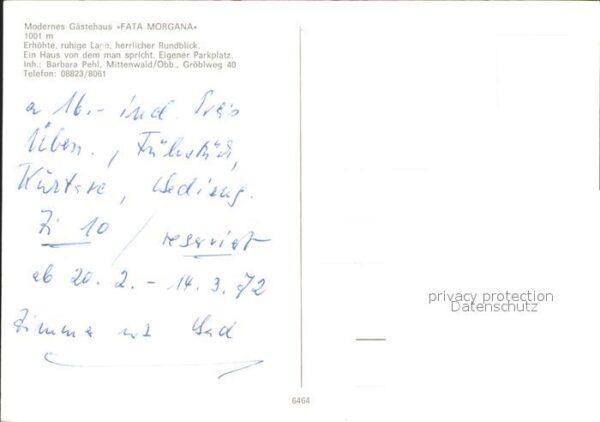 Modernes Gästehaus «FATA MORGANA»
1001 m
Erhöhte, ruhige Lage, herrlicher Rundblick.
Ein Haus von dem man spricht. Eigener Parkplatz.
Inh.: Barbara Pehl, Mittenwald/Obb., Gröblweg 40
Telefon: 08823/8061
a 16.- incl. Preis
Übern., Frühstück,
Kurtaxe, Bedieng.
Zi 10 / reserviert
ab 20. 2. - 14. 3. 72
Zimmer mit Bad
6464
privacy protection
Datenschutz